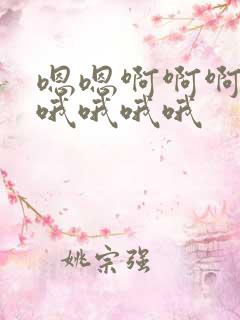 嗯嗯啊啊啊
哦哦哦哦
姚宗强